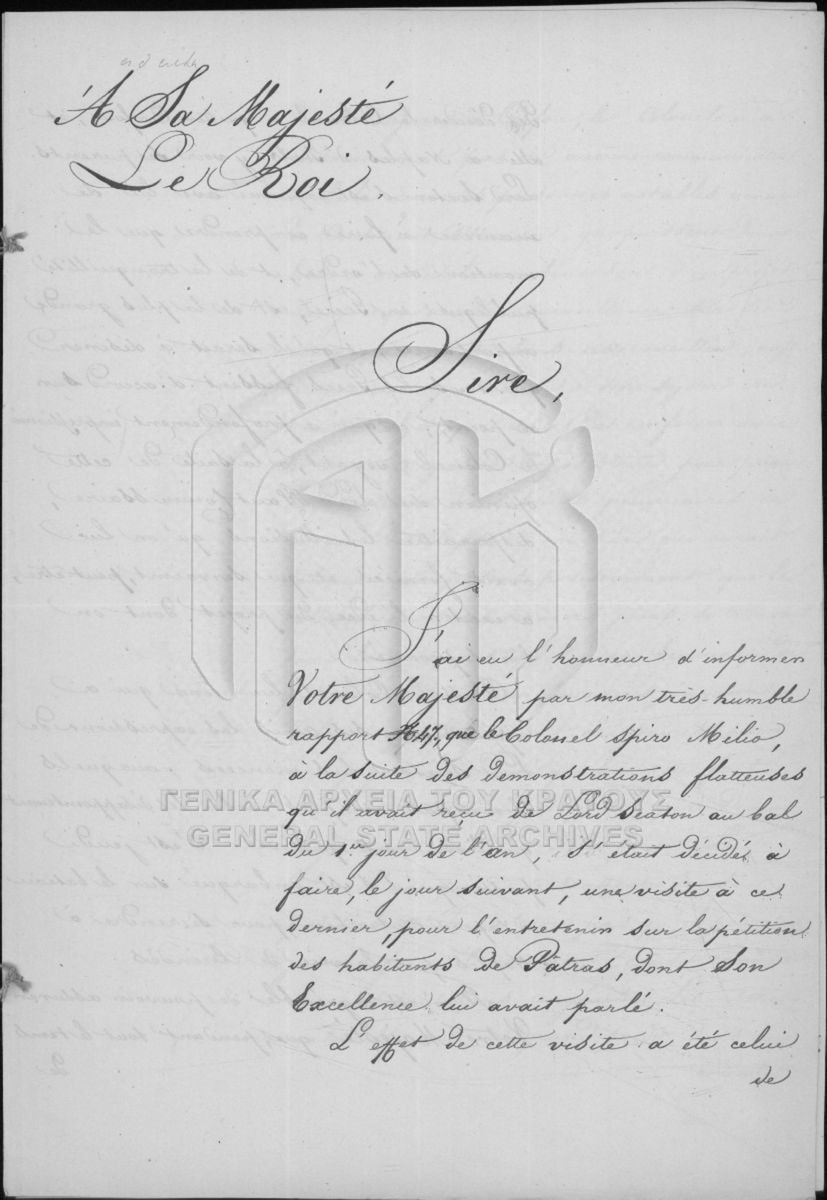 À Sa Majesté
Le Roi.
Sire,
J'ai eu l'honneur d'informer
Votre Majesté par mon très-humble
rapport № 47, que le Colonel Spiro Milio,
à la suite des demonstrations flatteuses
qu'il avait reçu de Lord Seaton au bal
du 1er jour de l'an, s'était décidé à
faire, le jour suivant, une visite à ce
dernier, pour l'entretenir sur la pétition
des habitants de Patras, dont Son
Excellence lui avait parlé.
L'effet de cette visite a été celui
de
ΓΕΝΙΚΑ ΑΡΧΕΙΑ ΤΟΥ ΚΡΑΤΟΥΣ
GENERAL STATE ARCHIVES